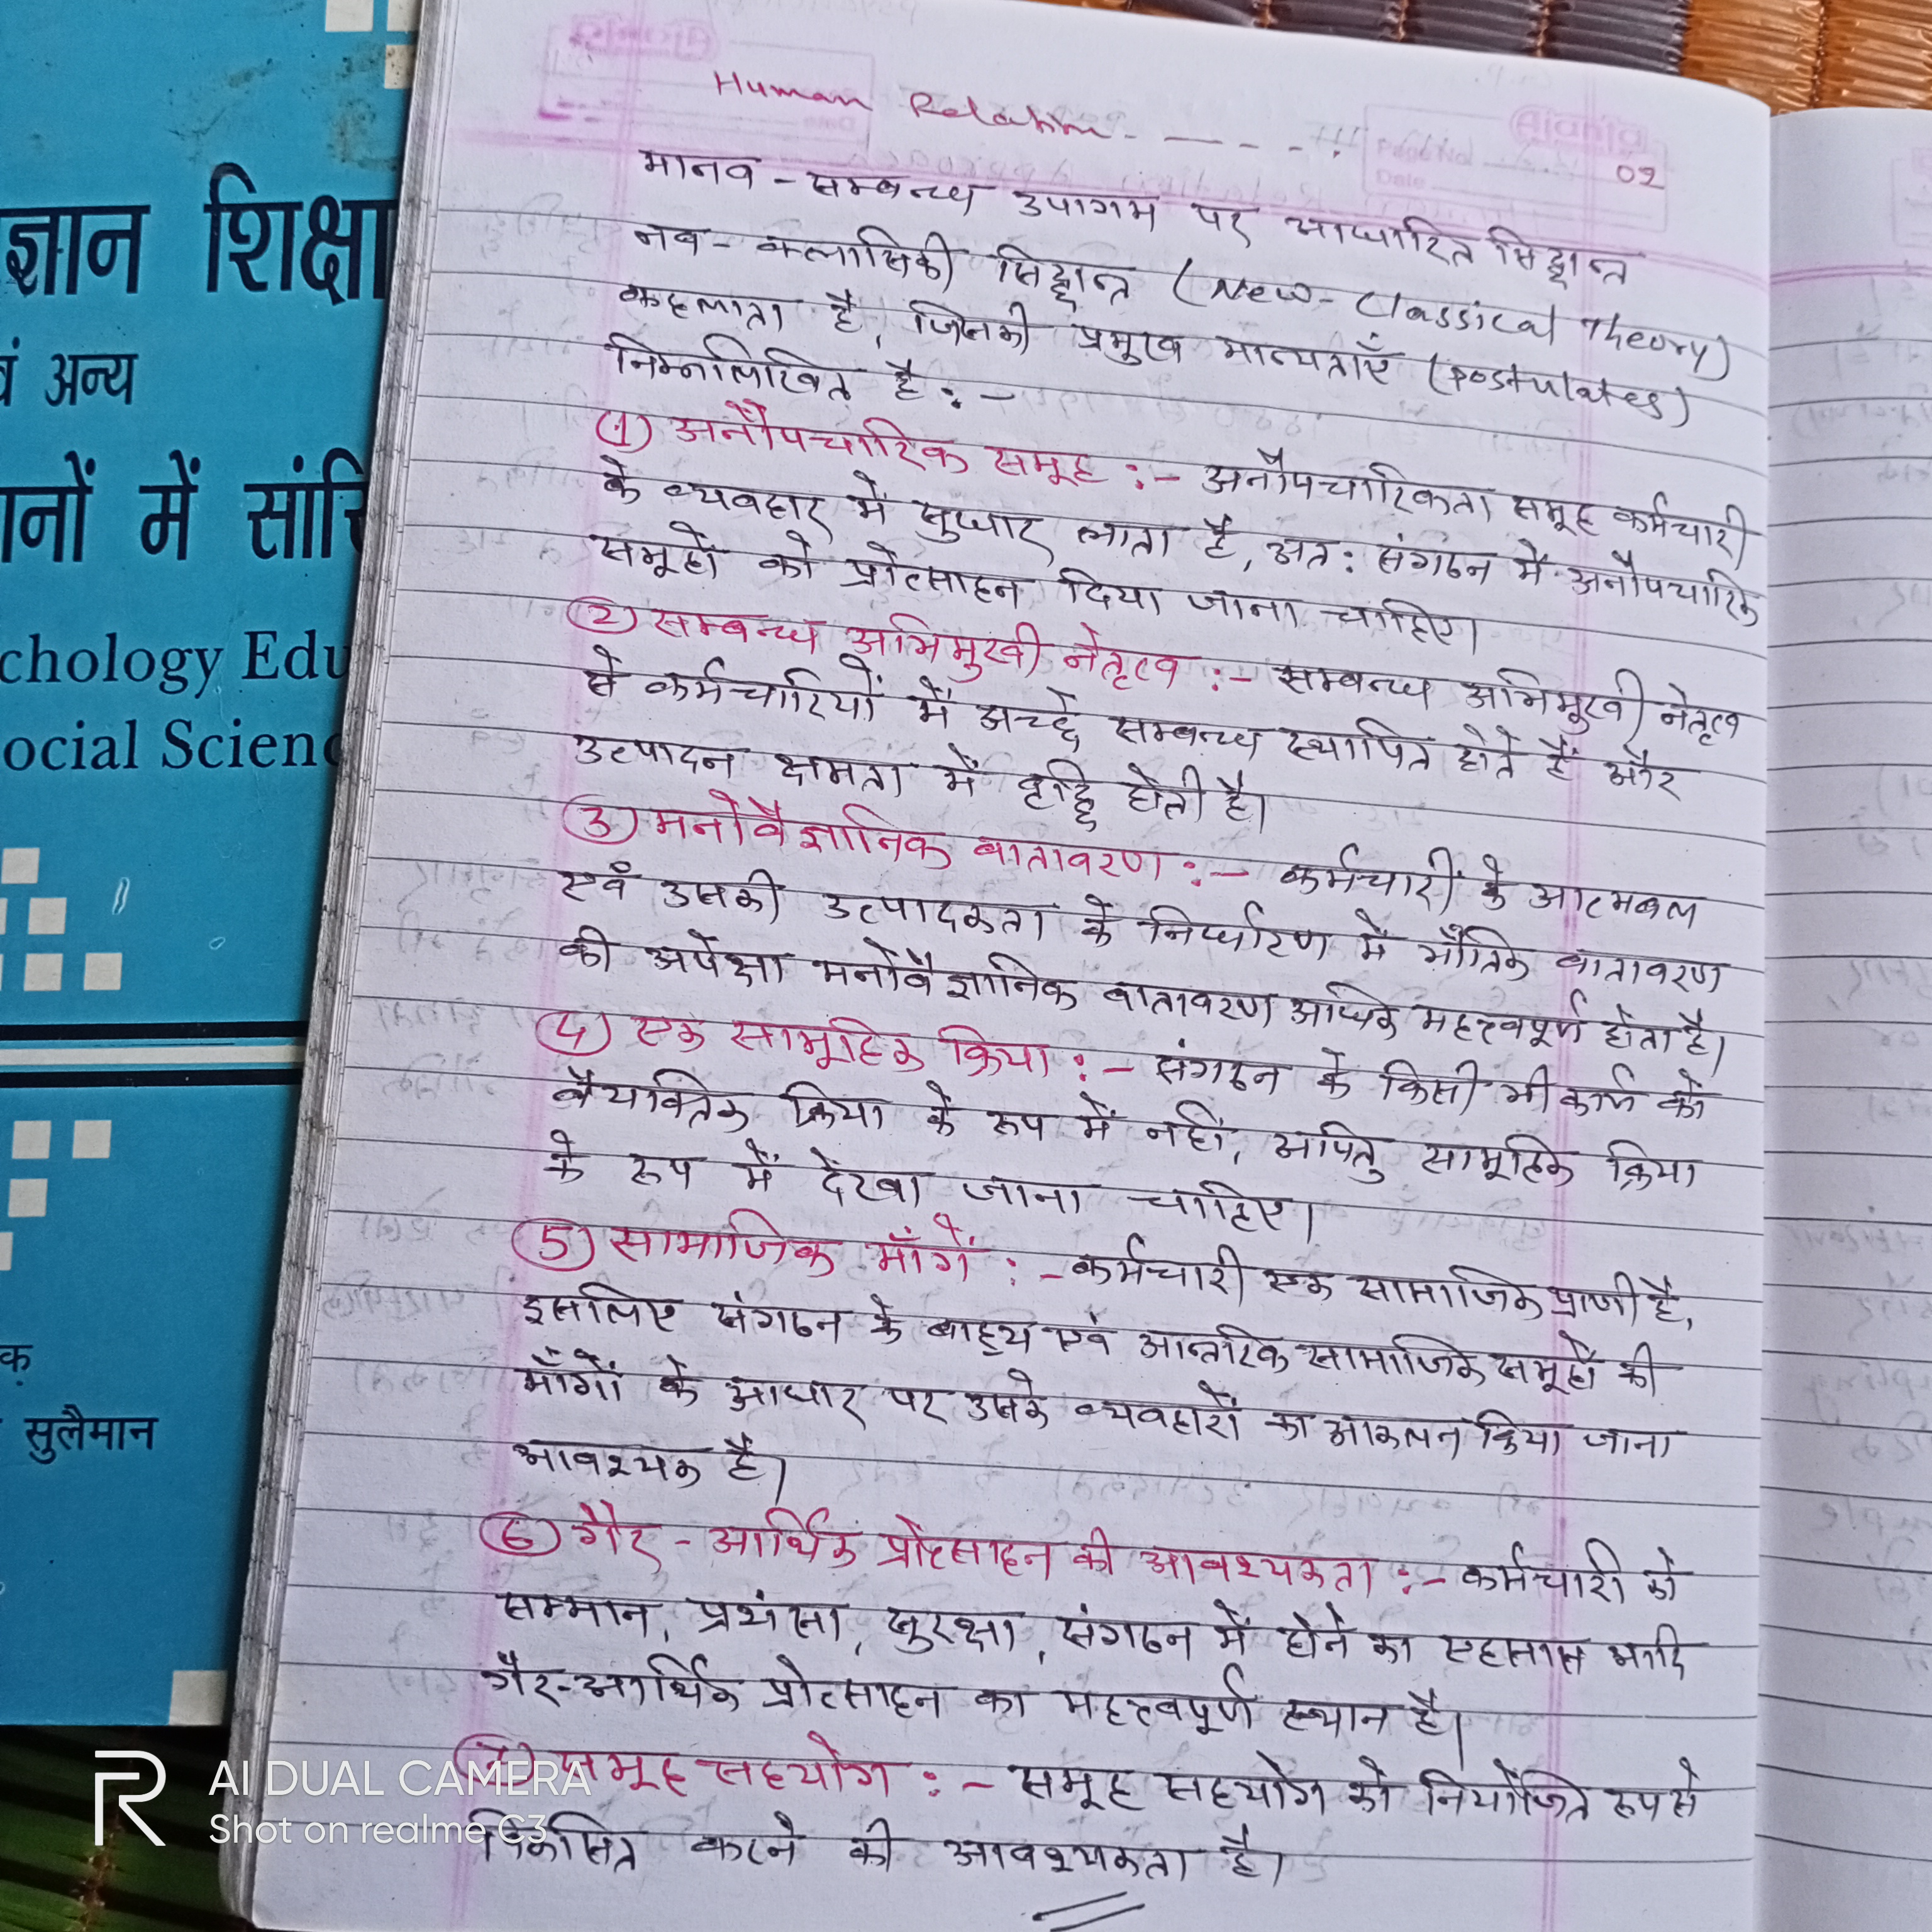 ज्ञान शिक्षा
वं अन्य
ानों में सांख
chology Edu
ocial Scienc
क
सुलैमान
Human Relation- - - - - .
02
मानव - सम्बन्ध उपागम पर आधारित सिद्धान्त
नव - क्लासिकी सिद्धान्त (New-Classical Theory)
कहलाता है, जिसकी प्रमुख मान्यताएँ (postulates)
निम्नलिखित है : -
(1) अनौपचारिक समूह :- अनौपचारिकता समूह कर्मचारी
के व्यवहार में सुधार लाता है, अत: संगठन में अनौपचारिक
समूहों को प्रोत्साहन दिया जाना चाहिए।
(2) सम्बन्ध अभिमुखी नेतृत्व :- सम्बन्ध अभिमुखी नेतृत्व
से कर्मचारियों में अच्छे सम्बन्ध स्थापित होते हैं और
उत्पादन क्षमता में वृद्धि होती है।
(3) मनोवैज्ञानिक वातावरण :- कर्मचारी के आत्मबल
एवं उसकी उत्पादकता के निर्धारण में भौतिक वातावरण
की अपेक्षा मनोवैज्ञानिक वातावरण अधिक महत्वपूर्ण होता है।
(4) एक सामूहिक क्रिया :- संगठन के किसी भी कार्य को
वैयक्तिक क्रिया के रूप में नहीं, अपितु सामूहिक क्रिया
के रूप में देखा जाना चाहिए।
(5) सामाजिक माँगें :- कर्मचारी एक सामाजिक प्राणी है,
इसलिए संगठन के बाह्य एवं आन्तरिक सामाजिक समूहों की
माँगों के आधार पर उसके व्यवहारों का आकलन किया जाना
आवश्यक है।
(6) गैर - आर्थिक प्रोत्साहन की आवश्यकता :- कर्मचारी को
सम्मान, प्रशंसा, सुरक्षा, संगठन में होने का एहसास आदि
गैर-आर्थिक प्रोत्साहन का महत्वपूर्ण स्थान है।
(7) समूह सहयोग :- समूह सहयोग को नियोजित रूप से
विकसित करने की आवश्यकता है।
R AI DUAL CAMERA
Shot on realme C3